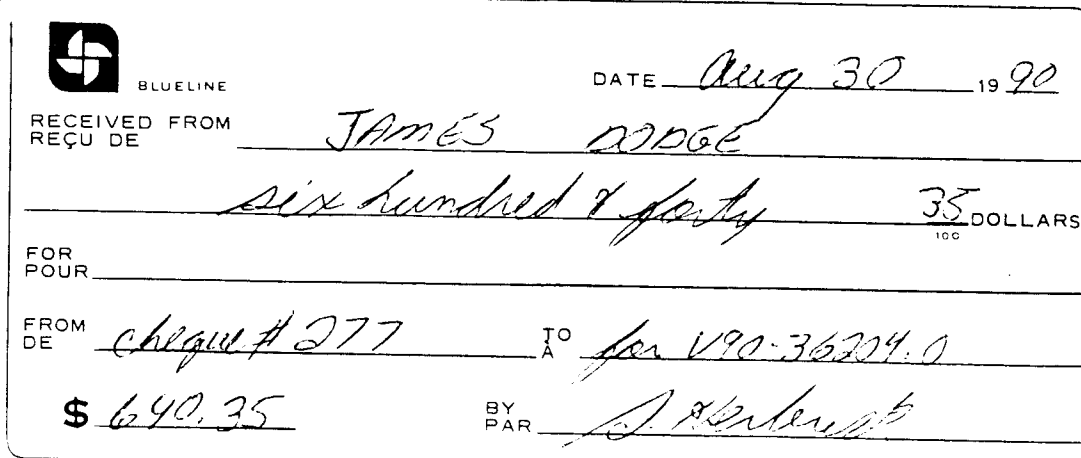 BLUELINE
DATE Aug 30 19 90
RECEIVED FROM JAMES DODGE
REÇU DE
six hundred & forty 35/100 DOLLARS
FOR
POUR
FROM cheque # 277 TO for V90-36204.0
DE À
$ 640.35 BY
PAR